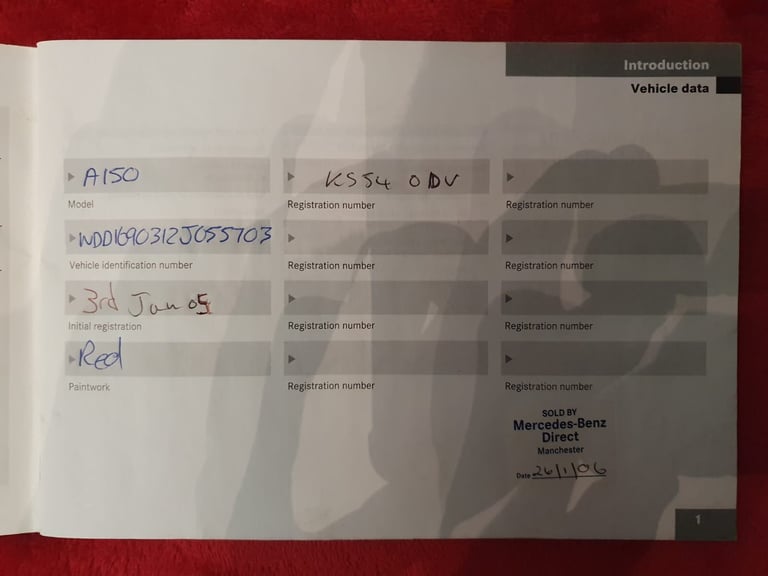 Introduction
Vehicle data
A150
KS54 ODV
Model
Registration number
Registration number
WDD1690312J055703
Vehicle identification number
Registration number
Registration number
3rd Jan 05
Initial registration
Registration number
Registration number
Red
Paintwork
Registration number
Registration number
SOLD BY
Mercedes-Benz
Direct
Manchester
Date 26/1/06
1